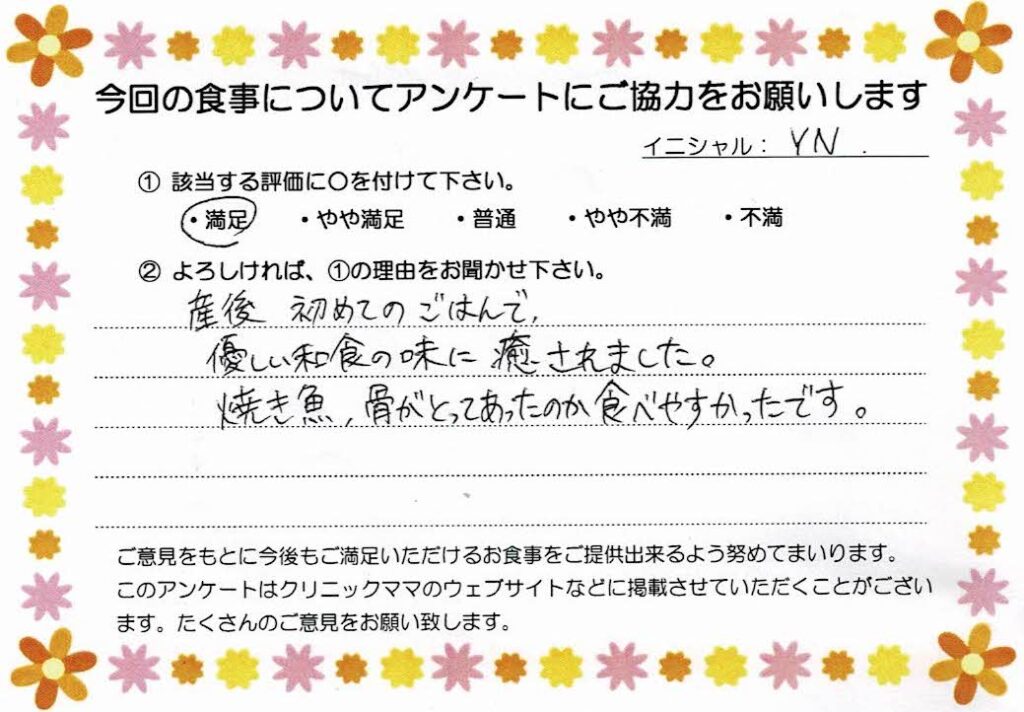 今回の食事についてアンケートにご協力をお願いします
イニシャル： YN.
① 該当する評価に○を付けて下さい。
・満足 ・やや満足 ・普通 ・やや不満 ・不満
② よろしければ、①の理由をお聞かせ下さい。
産後 初めてのごはんで,
優しい和食の味に癒されました。
焼き魚,骨がとってあったのか食べやすかったです。
ご意見をもとに今後もご満足いただけるお食事をご提供出来るよう努めてまいります。
このアンケートはクリニックママのウェブサイトなどに掲載させていただくことがござい
ます。たくさんのご意見をお願い致します。